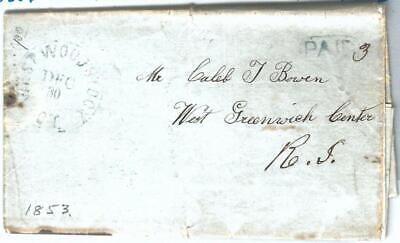 WEST WOODSTOCK
DEC
30
PAID 3
Mr Caleb T Bowen
West Greenwich Center
R. I.
1853